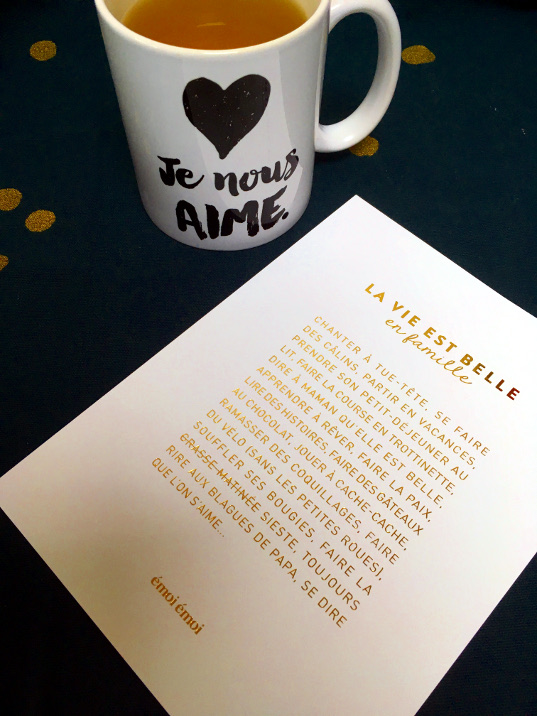 Je nous
AIME.
LA VIE EST BELLE
en famille
CHANTER À TUE-TÊTE, SE FAIRE
DES CÂLINS, PARTIR EN VACANCES,
PRENDRE SON PETIT-DÉJEUNER AU
LIT, FAIRE LA COURSE EN TROTTINETTE,
DIRE À MAMAN QU'ELLE EST BELLE,
APPRENDRE À RÊVER, FAIRE LA PAIX,
LIRE DES HISTOIRES, FAIRE DES GÂTEAUX
AU CHOCOLAT, JOUER À CACHE-CACHE,
RAMASSER DES COQUILLAGES, FAIRE
DU VÉLO (SANS LES PETITES ROUES),
SOUFFLER SES BOUGIES, FAIRE LA
GRASSE MATINÉE SIESTE, TOUJOURS
RIRE AUX BLAGUES DE PAPA, SE DIRE
QUE L'ON S'AIME...
émoi émoi